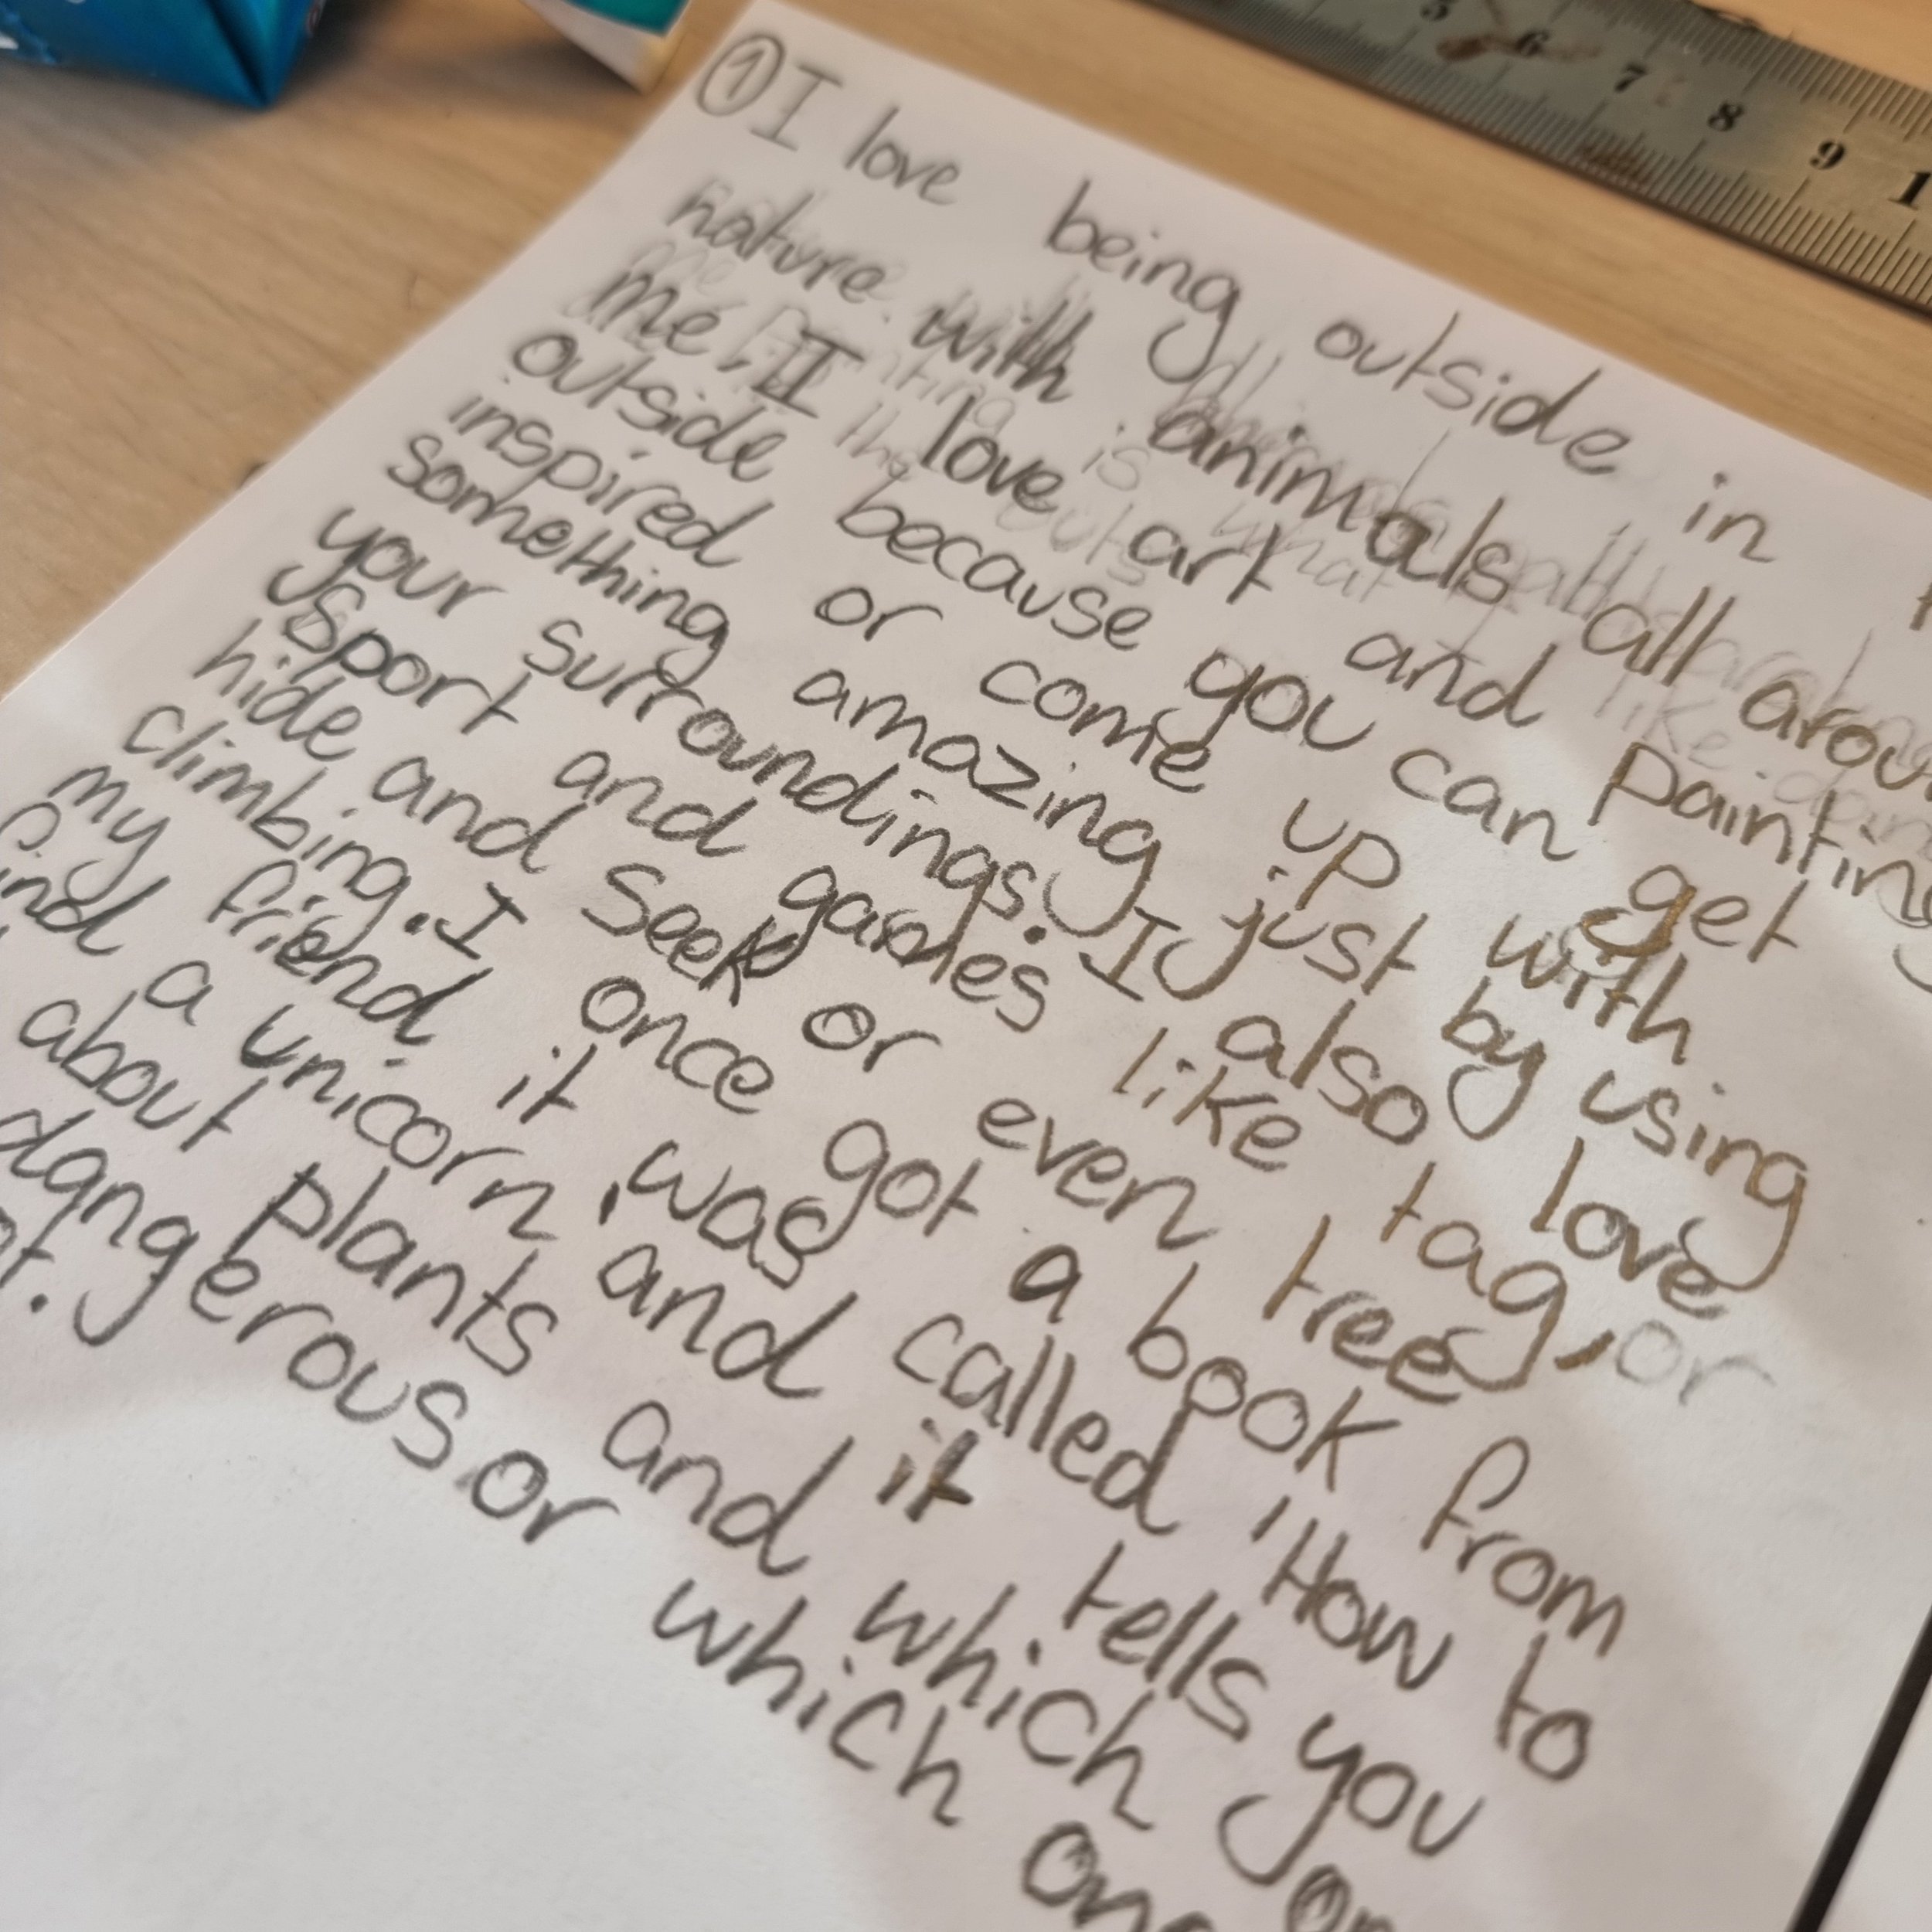 5 6 7 8 9 1
① I love being outside in
nature with animals all arou
me, I love art and painting
outside because you can get
inspired or come up with
something amazing just by using
your surroundings. I also love
sport and games like tag, or
hide and seek or even tree
climbing. I once got a book from
my friend it was called "How to
find a unicorn, and it tells you
about plants and which
dangerous or which